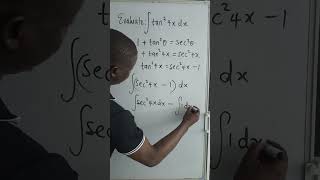 Evaluate: ∫tan²4x dx
1 + tan²θ = sec²θ
+ tan²4x = sec²4x
tan²4x = sec²4x - 1
∫(sec²4x - 1) dx
∫sec²4x dx - ∫1 dx